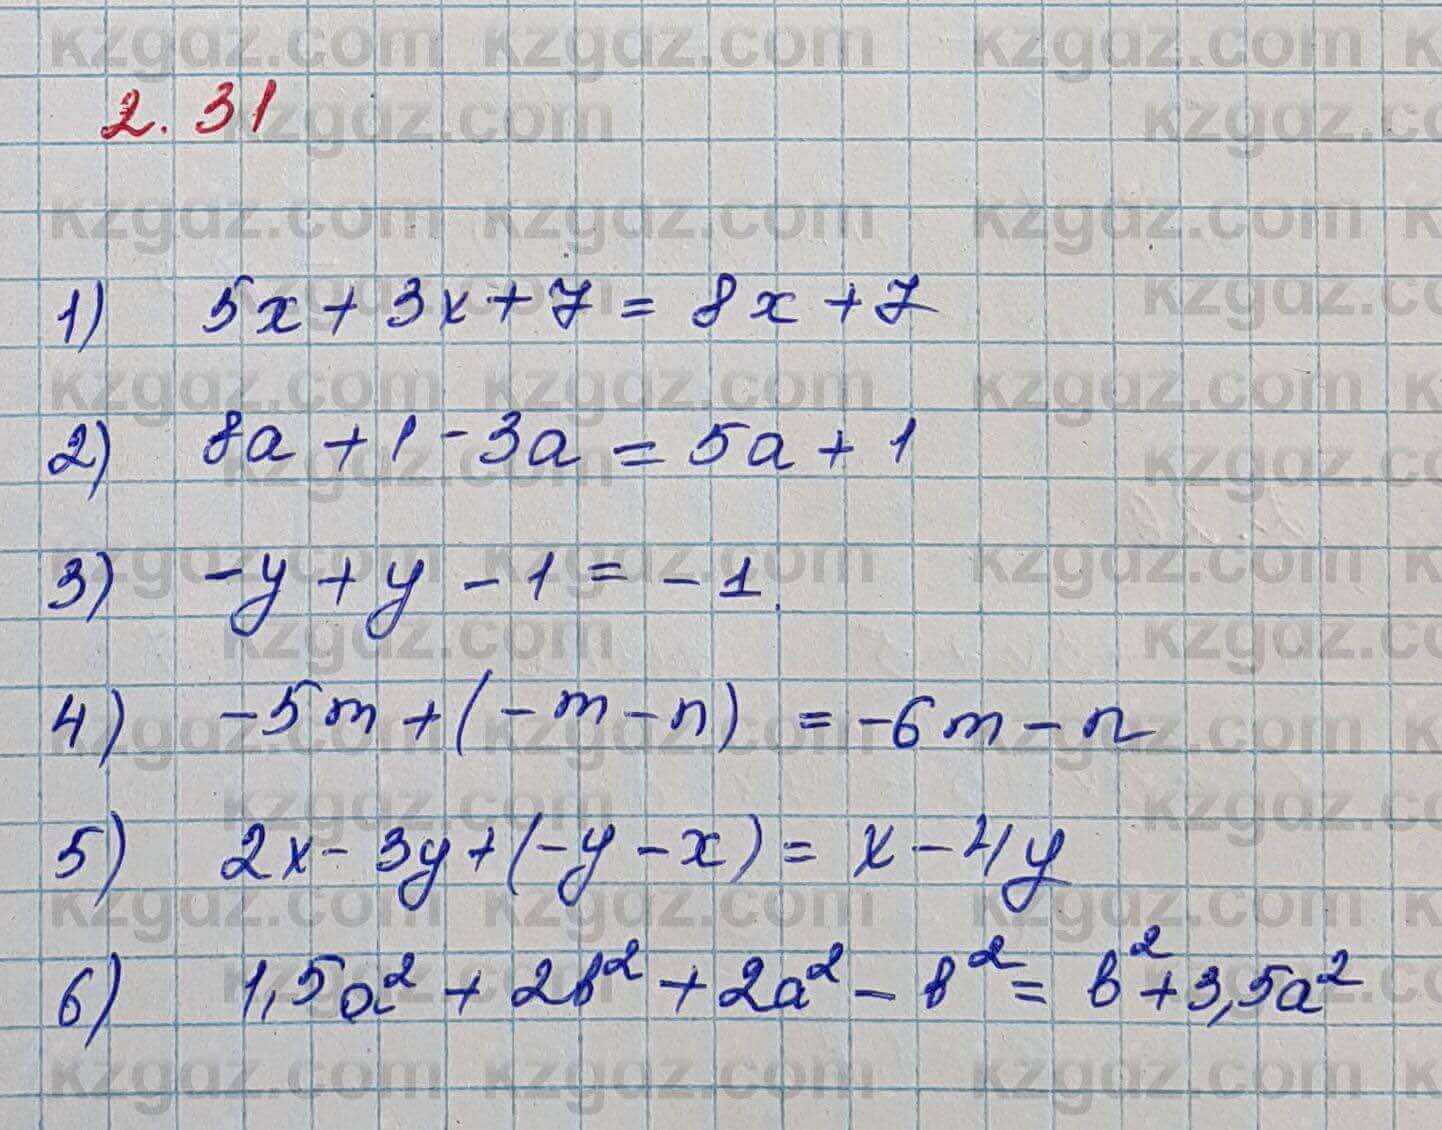 2.31
1) 5x + 3x + 7 = 8x + 7
2) 8a + 1 - 3a = 5a + 1
3) -y + y - 1 = -1.
4) -5m + (-m - n) = -6m - n
5) 2x - 3y + (-y - x) = x - 4y
6) 1,5a² + 2b² + 2a² - b² = b² + 3,5a²
kzgdz.com